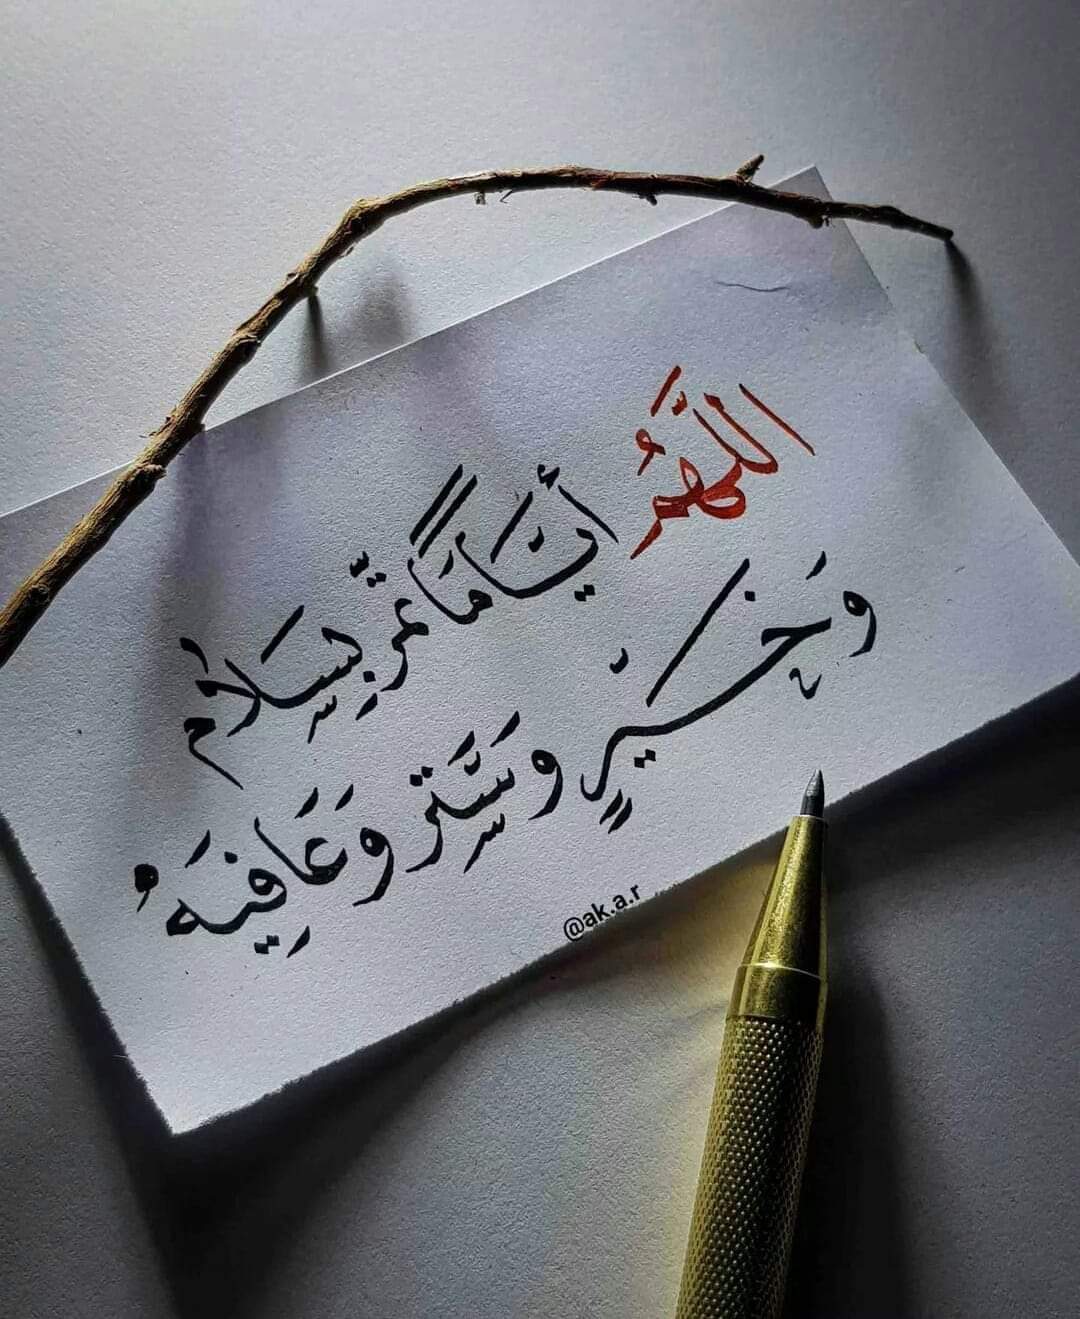 اللَّهُمَّ أيَّامًا تمرّ بِسَلَام
وَخَيْرٍ وَسَتر وَعَافِيَه
@ak.a.r